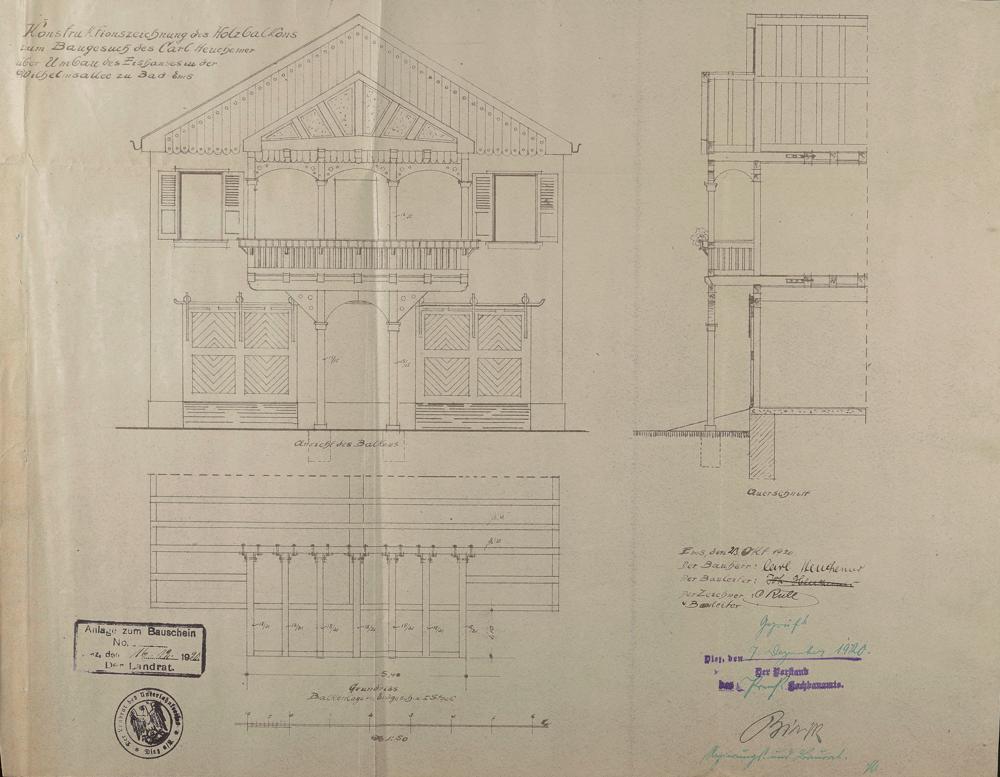 Konstruktionszeichnung des Holzbalkons
zum Baugesuch des Carl Heuchemer
über Umbau des Eishauses in der
Wilhelmsallee zu Bad Ems
Ansicht des Balkons
Querschnitt
Ems, den 23. Okt 1920
Der Bauherr: Carl Heuchemer
Der Bauleiter:
Der Zeichner
u Bauleiter
Geprüft
Diez, den 7. Dezember 1920.
Der Vorstand
des Preuß. Hochbauamts.
Regierungs- und Baurat.
Anlage zum Bauschein
No.
Diez, den 192
Der Landrat.
Der Landrat des Unterlahnkreises
Diez
5,40
Grundriss
1:50